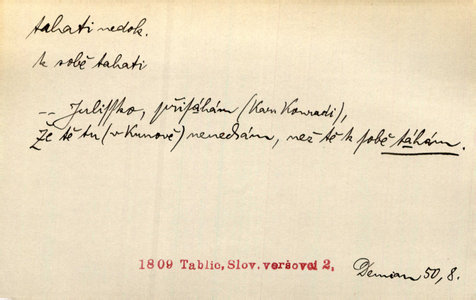 tahati nedok.
k sobě tahati
-- Juliſſko, přiſahám (Karu Konradi),
Že tě tu (v Kunově) nenechám, než tě k ſobě táhám.
1809 Tablic, Slov. veršovci 2,
Demian 50, 8.